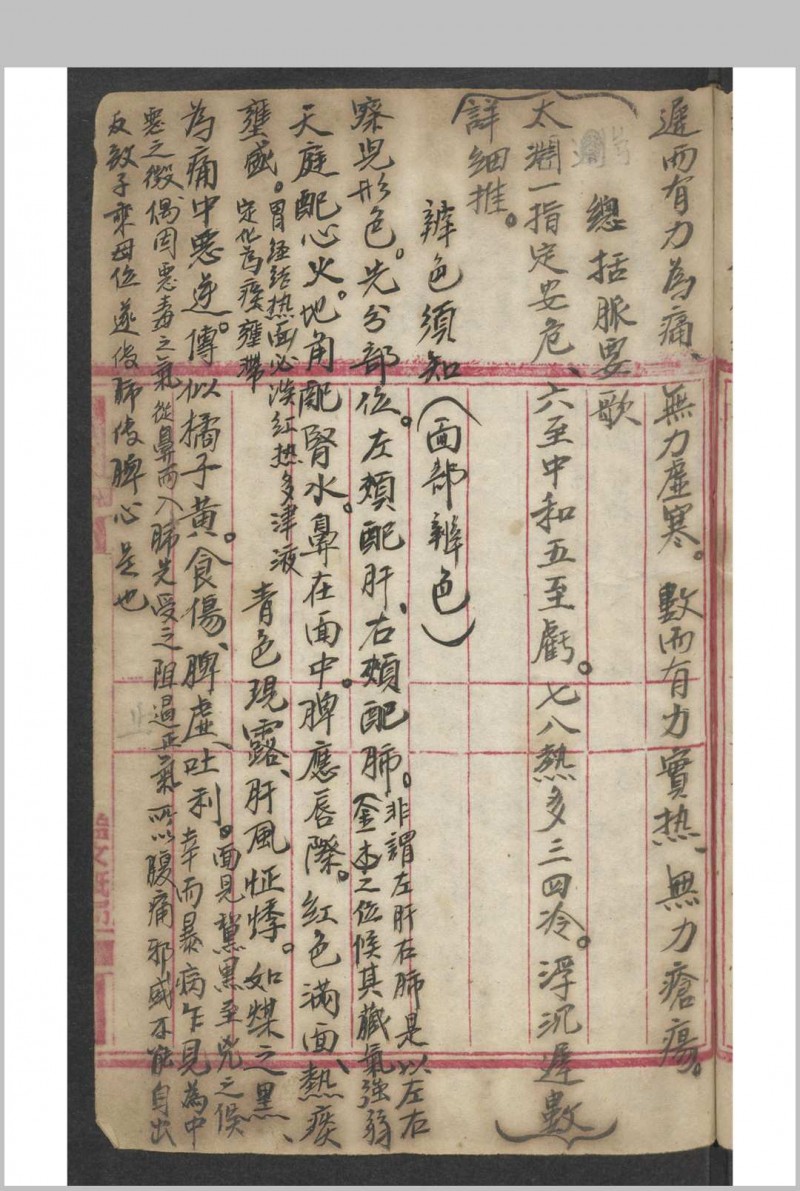 遲而有力為痛、無力虛寒。數而有力實热、無力瘡瘍。
總括脈要歌
太淵一指定安危、六至中和五至虧。七八熱多三四冷。浮沉遲數
詳細推。
辨色須知（面部辨色）
察兒形色。先分部位。左頰配肝、右頰配肺。非謂左肝右肺是以左右
金木之位候其臟氣強弱
天庭配心火。地角配腎水。鼻在面中。脾應唇際。紅色滿面、熱痰
壅盛。胃經結热面必淡紅热多津液
定化為痰壅滯
青色現露、肝風怔悸。如煤之黑、
為痛中惡逆傳。似橘子黃。食傷、脾虛、吐利。面見黧黑至兇之候
幸而暴病乍見為中
惡之徵偶因惡毒之氣從鼻而入肺先受之阻遏正氣所以腹痛邪盛不能自出
反致子乘母位遂傳肺傳脾心是也